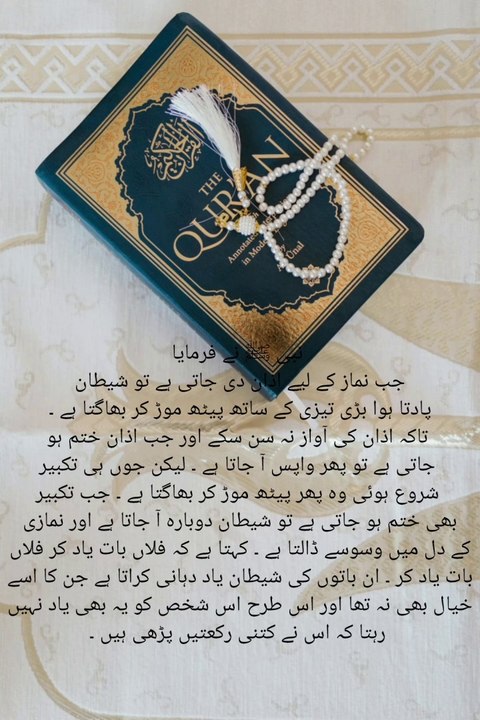 القرآن الكريم
THE
QUR'AN
Annotated
in Modern
by
Ünal
نبی ﷺ نے فرمایا
جب نماز کے لیے اذان دی جاتی ہے تو شیطان
پادتا ہوا بڑی تیزی کے ساتھ پیٹھ موڑ کر بھاگتا ہے ۔
تاکہ اذان کی آواز نہ سن سکے اور جب اذان ختم ہو
جاتی ہے تو پھر واپس آ جاتا ہے ۔ لیکن جوں ہی تکبیر
شروع ہوئی وہ پھر پیٹھ موڑ کر بھاگتا ہے ۔ جب تکبیر
بھی ختم ہو جاتی ہے تو شیطان دوبارہ آ جاتا ہے اور نمازی
کے دل میں وسوسے ڈالتا ہے ۔ کہتا ہے کہ فلاں بات یاد کر فلاں
بات یاد کر ۔ ان باتوں کی شیطان یاد دہانی کراتا ہے جن کا اسے
خیال بھی نہ تھا اور اس طرح اس شخص کو یہ بھی یاد نہیں
رہتا کہ اس نے کتنی رکعتیں پڑھی ہیں ۔